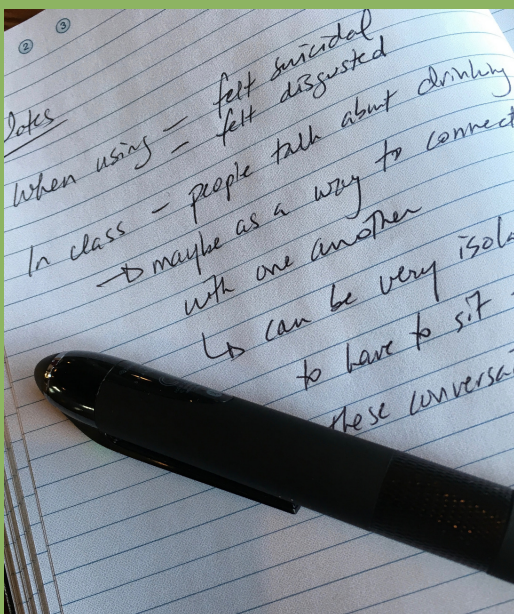 ② ③
Notes
When using – felt suicidal
– felt disgusted
In class – people talk about drinking
→ maybe as a way to connect
with one another
↳ can be very
to have to sit
these